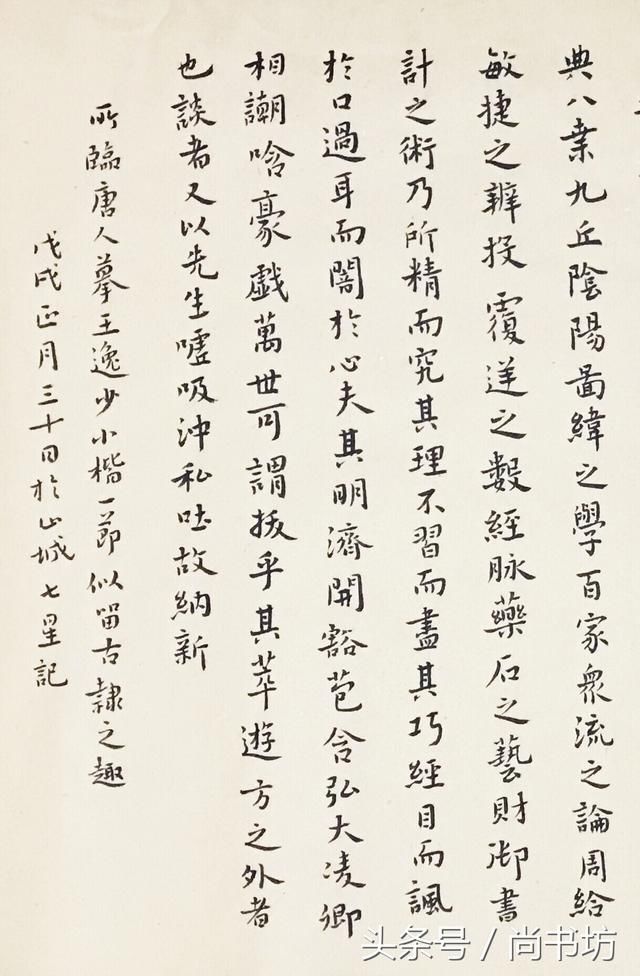 典八索九丘陰陽圖緯之學百家衆流之論周給
敏捷之辨投覆逆之數經脉藥石之藝財御書
計之術乃所精而究其理不習而盡其巧經目而諷
於口過耳而闇於心夫其明濟開豁苞含弘大凌卿
相謿唅豪戲萬世可謂拔乎其萃遊方之外者
也談者又以先生噓吸沖私吐故納新
所臨唐人摹王逸少小楷一節似留古隸之趣
戊戌正月三十日於山城七星記
头条号 / 尚书坊